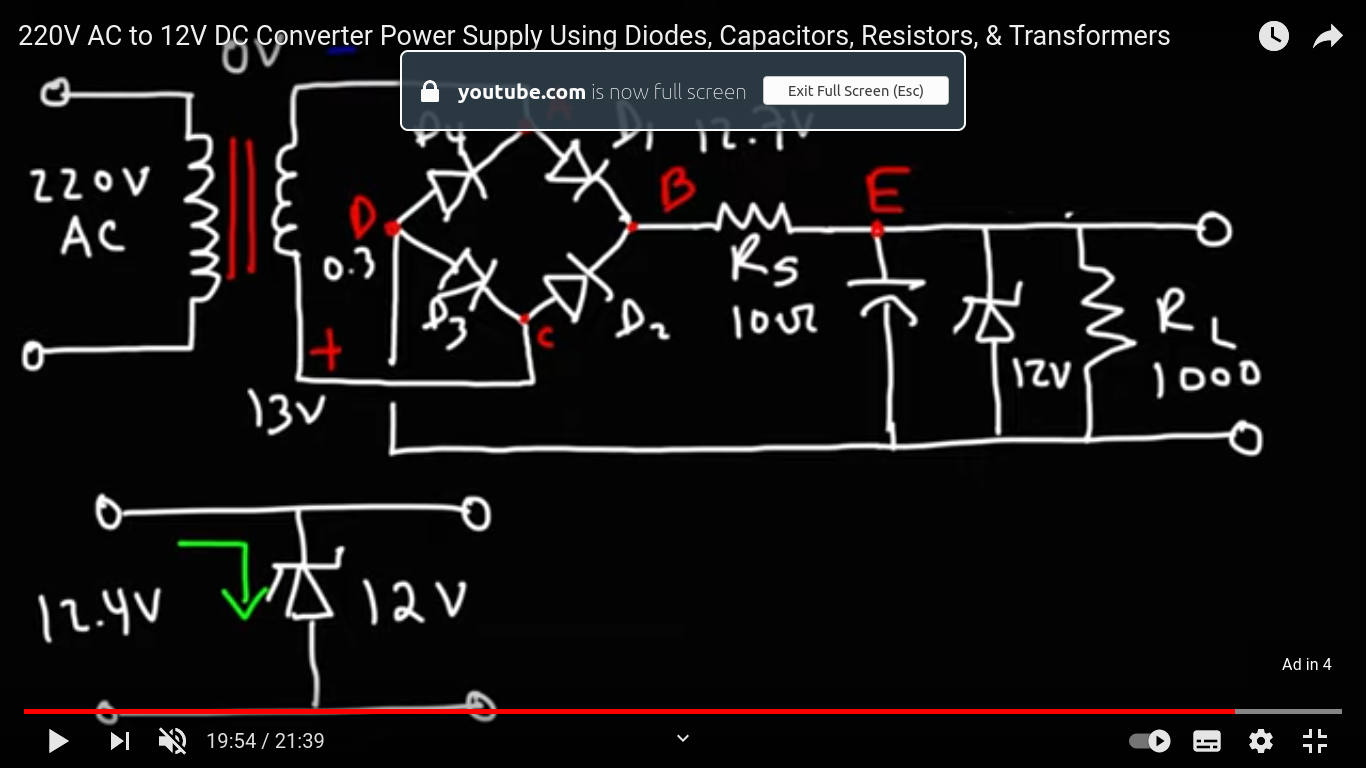 220V AC to 12V DC Converter Power Supply Using Diodes, Capacitors, Resistors, & Transformers
0V -
youtube.com is now full screen
Exit Full Screen (Esc)
A
D4
D1 12.7V
220V
AC
D
0.3
B
E
RS
10Ω
D3
C
D2
+
13V
12V
RL
1000
12.4V
12V
Ad in 4
19:54 / 21:39